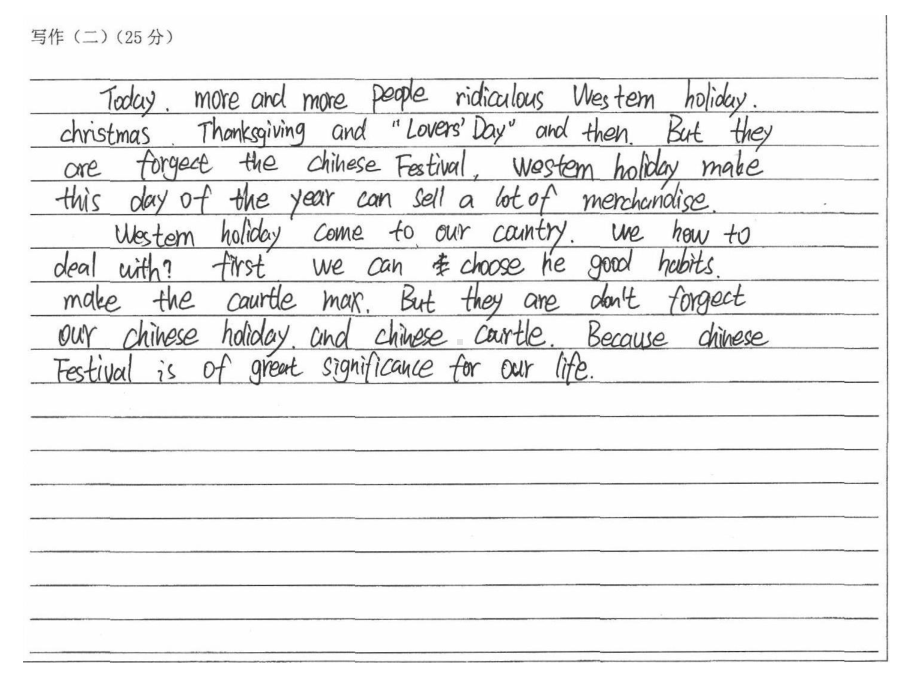 写作（二）（25 分）
Today. more and more people ridiculous Western holiday.
christmas Thanksgiving and "Lovers' Day" and then. But they
are forgect the chinese Festival, western holiday make
this day of the year can sell a lot of merchandise.
Western holiday come to our country. we how to
deal with? first we can choose he good habits.
make the caurtle max. But they are don't forgect
our chinese holiday. and chinese caurtle. Because chinese
Festival is of great significance for our life.